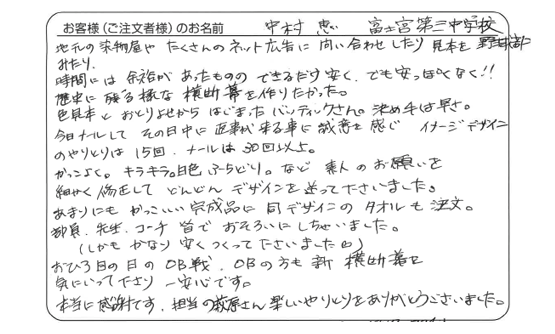 お客様（ご注文者様）のお名前 中村 恵 富士宮第三中学校 野球部
地元の染物屋や たくさんのネット広告に 問い合わせしたり 見本を
みたり、
時間には 余裕が あったものの できるだけ安く、でも安っぽくなく!!
歴史に 残る様な 横断幕を作りたかった。
色見本と おとりよせから はじまった バンティックさん。決め手は早さ。
今日メールして その日中に 返事が来る事に 誠意を 感じ イメージデザイン
のやりとりは 15回、メールは 30回以上。
かっこよく。キラキラ。白色 ふちどり。など 素人 のお願いを
細かく 修正して どんどん デザインを 送って下さいました。
あまりにも かっこいい 完成品に 同デザインの タオル も 注文。
部員、先生、コーチ 皆で おそろいに しちゃいました。
（しかも かなり 安く つくって 下さいました）
おひろ目の日の OB戦、OBの方も 新 横断幕を
気にいって下さり 一安心です。
本当に感謝です。担当の萩原さん 楽しいやりとりを ありがとうございました。